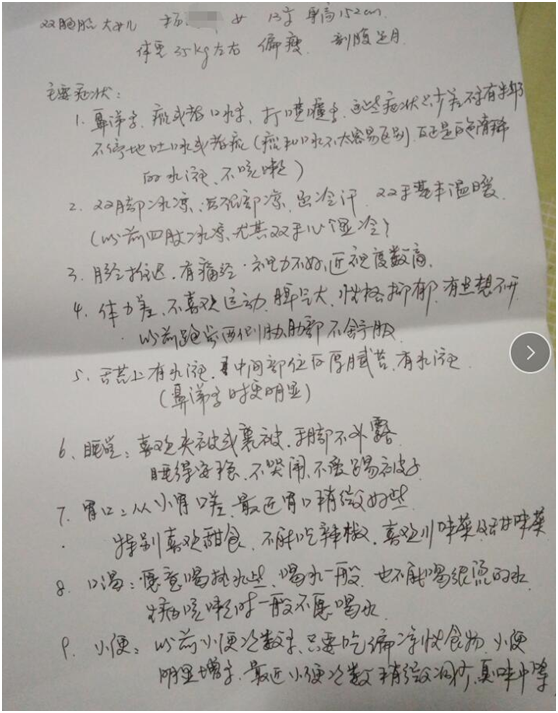 双胞胎大女儿 杨 女 13岁 身高152cm
体重35kg左右 偏瘦 剖腹足月
主要症状:
1. 鼻涕多、痰或者口水多,打喷嚏多,这些症状
不停地吐口水或者痰(痰和口水不太容易区别),反正是白色清稀
的水泡,不咳嗽)
2. 双脚冰凉,出冷汗,双手基本温暖
(以前四肢冰凉,尤其双手心个显冷)
3. 月经推迟,有痛经,视力不好,近视度数高
4. 体力差,不喜欢运动,脾气大,性格抑郁,有些想不开
以前跑步两侧胁肋部不舒服
5. 舌苔上有水泡,中间部位厚腻苔,有水泡
(鼻涕多时更明显)
6. 睡觉:喜欢夹被或裹被,手脚不外露
睡得安稳,不哭闹,不蹬踢被子
7. 胃口:从小胃口差,最近胃口稍微好些
特别喜欢甜食,不能吃辣椒,喜欢川味菜
8. 口渴:愿意喝热水些,喝水一般,也不能喝很烫的水
生病咳嗽时一般不愿喝水
9. 小便:以前小便次数多,只要吃偏凉性食物,小便
明显增多,最近小便次数稍微减少,臭味中等